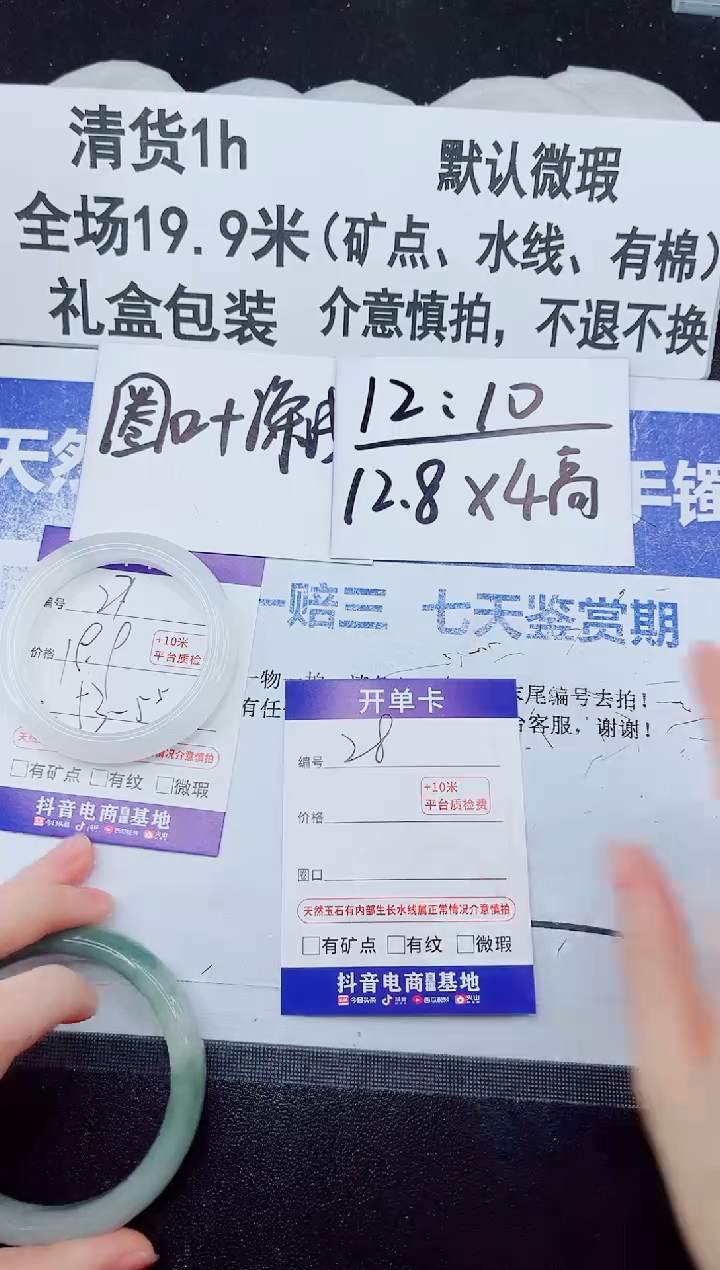 清货1h
默认微瑕
全场19.9米(矿点、水线、有棉)
礼盒包装 介意慎拍，不退不换
圈口十深
12:10
12.8×4高
天然
手镯
一赔三 七天鉴赏期
一物一拍
末尾编号去拍!
有任
台客服，谢谢!
编号 27
价格 19.9
+10米
平台质检
53-55
情况介意慎拍
有矿点 有纹 微瑕
抖音电商直播基地
开单卡
编号 28
+10米
平台质检费
价格
圈口
天然玉石有内部生长水线属正常情况介意慎拍
有矿点 有纹 微瑕
抖音电商直播基地
今日头条 抖音 西瓜视频 火山